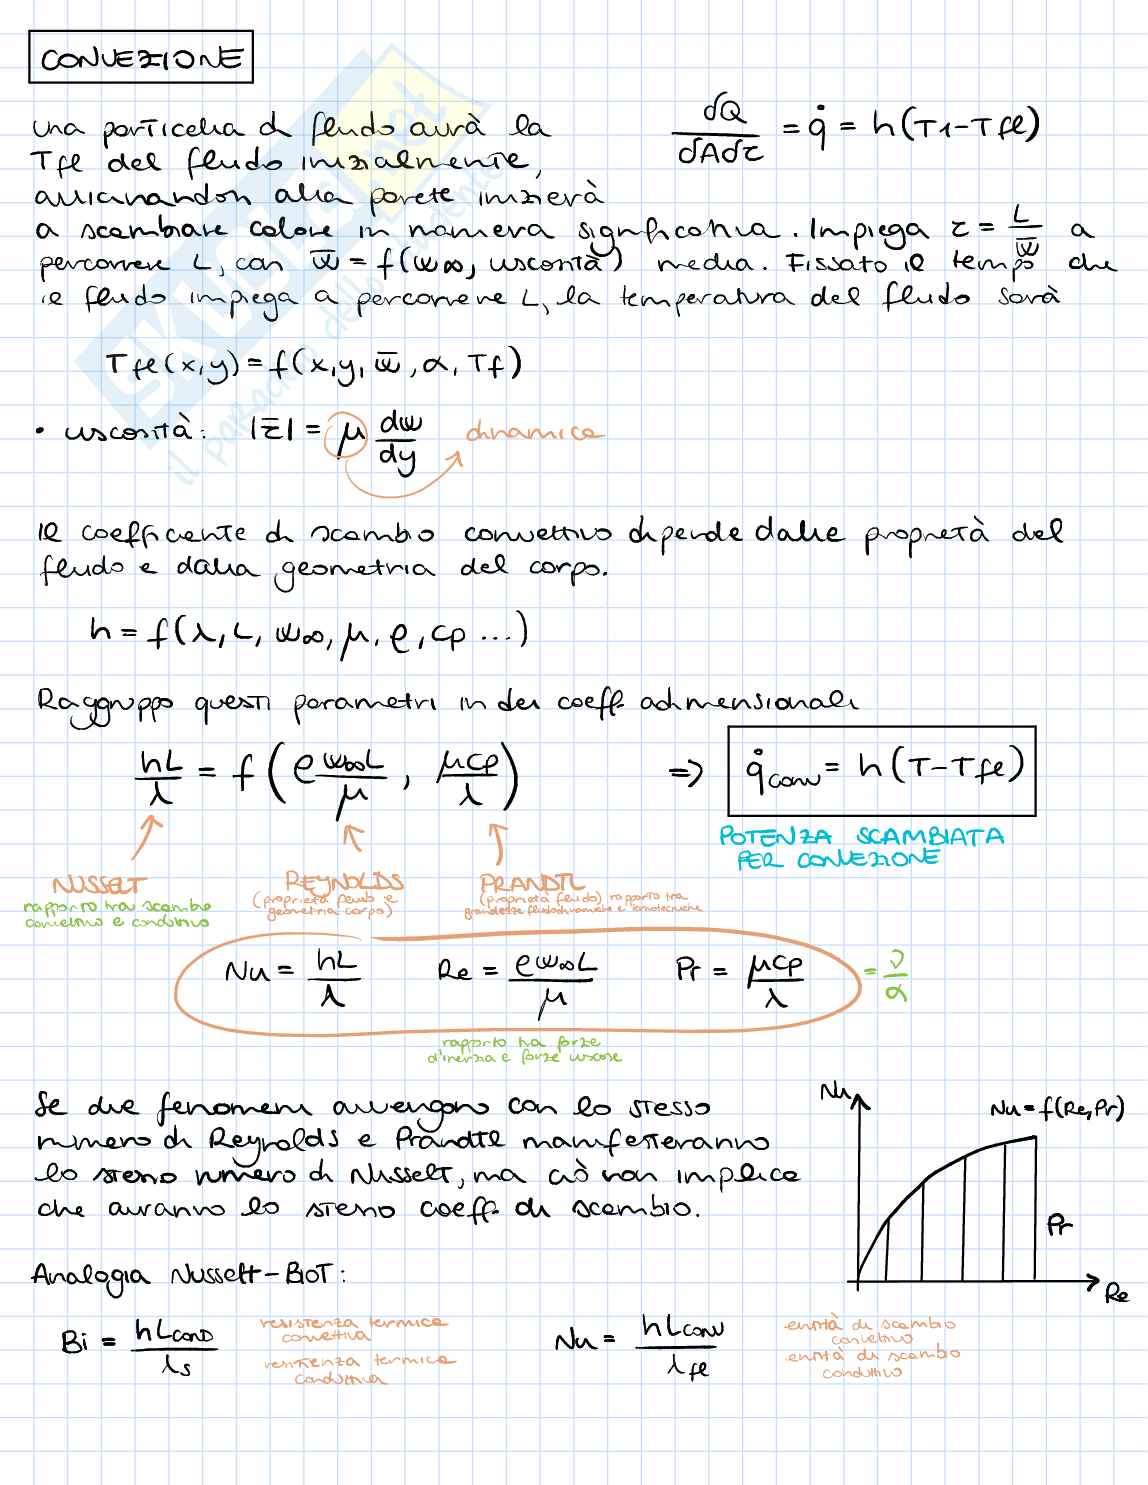 CONVEZIONE
una particella di fluido avrà la
Tfl del fluido inizialmente,
avvicinandosi alla parete inizierà
dQ/dAdτ = q̇ = h(T1-Tfl)
a scambiare calore in maniera significativa. Impiega τ = L/w̅ a
percorrere L, con w̅ = f(w∞, viscosità) media. Fissato il tempo che
il fluido impiega a percorrere L, la temperatura del fluido sarà
Tfl(x,y) = f(x,y, w̅, α, Tf)
• viscosità: |τ̅| = μ dw/dy dinamica
Il coefficiente di scambio convettivo dipende dalle proprietà del
fluido e dalla geometria del corpo.
h = f(λ, L, w∞, μ, ρ, cp ...)
Raggruppo questi parametri in dei coeff. adimensionali
hL/λ = f(ρw∞L/μ, μcp/λ) => q̇conv = h(T-Tfl)
POTENZA SCAMBIATA
PER CONVEZIONE
NUSSELT
rapporto tra scambio
convettivo e conduttivo
REYNOLDS
(proprietà fluido e
geometria corpo)
PRANDTL
(proprietà fluido) rapporto tra
grandezze fluidodinamiche e termotecniche
Nu = hL/λ Re = ρw∞L/μ Pr = μcp/λ = ν/α
rapporto tra forze
d'inerzia e forze viscose
Se due fenomeni avvengono con lo stesso
numero di Reynolds e Prandtl manifesteranno
lo stesso numero di Nusselt, ma ciò non implica
che avranno lo stesso coeff. di scambio.
Nu
Nu = f(Re,Pr)
Pr
Re
Analogia Nusselt-BioT:
Bi = hLcond/λs
resistenza termica
convettiva
resistenza termica
conduttiva
Nu = hLconv/λfl
entità di scambio
convettivo
entità di scambio
conduttivo